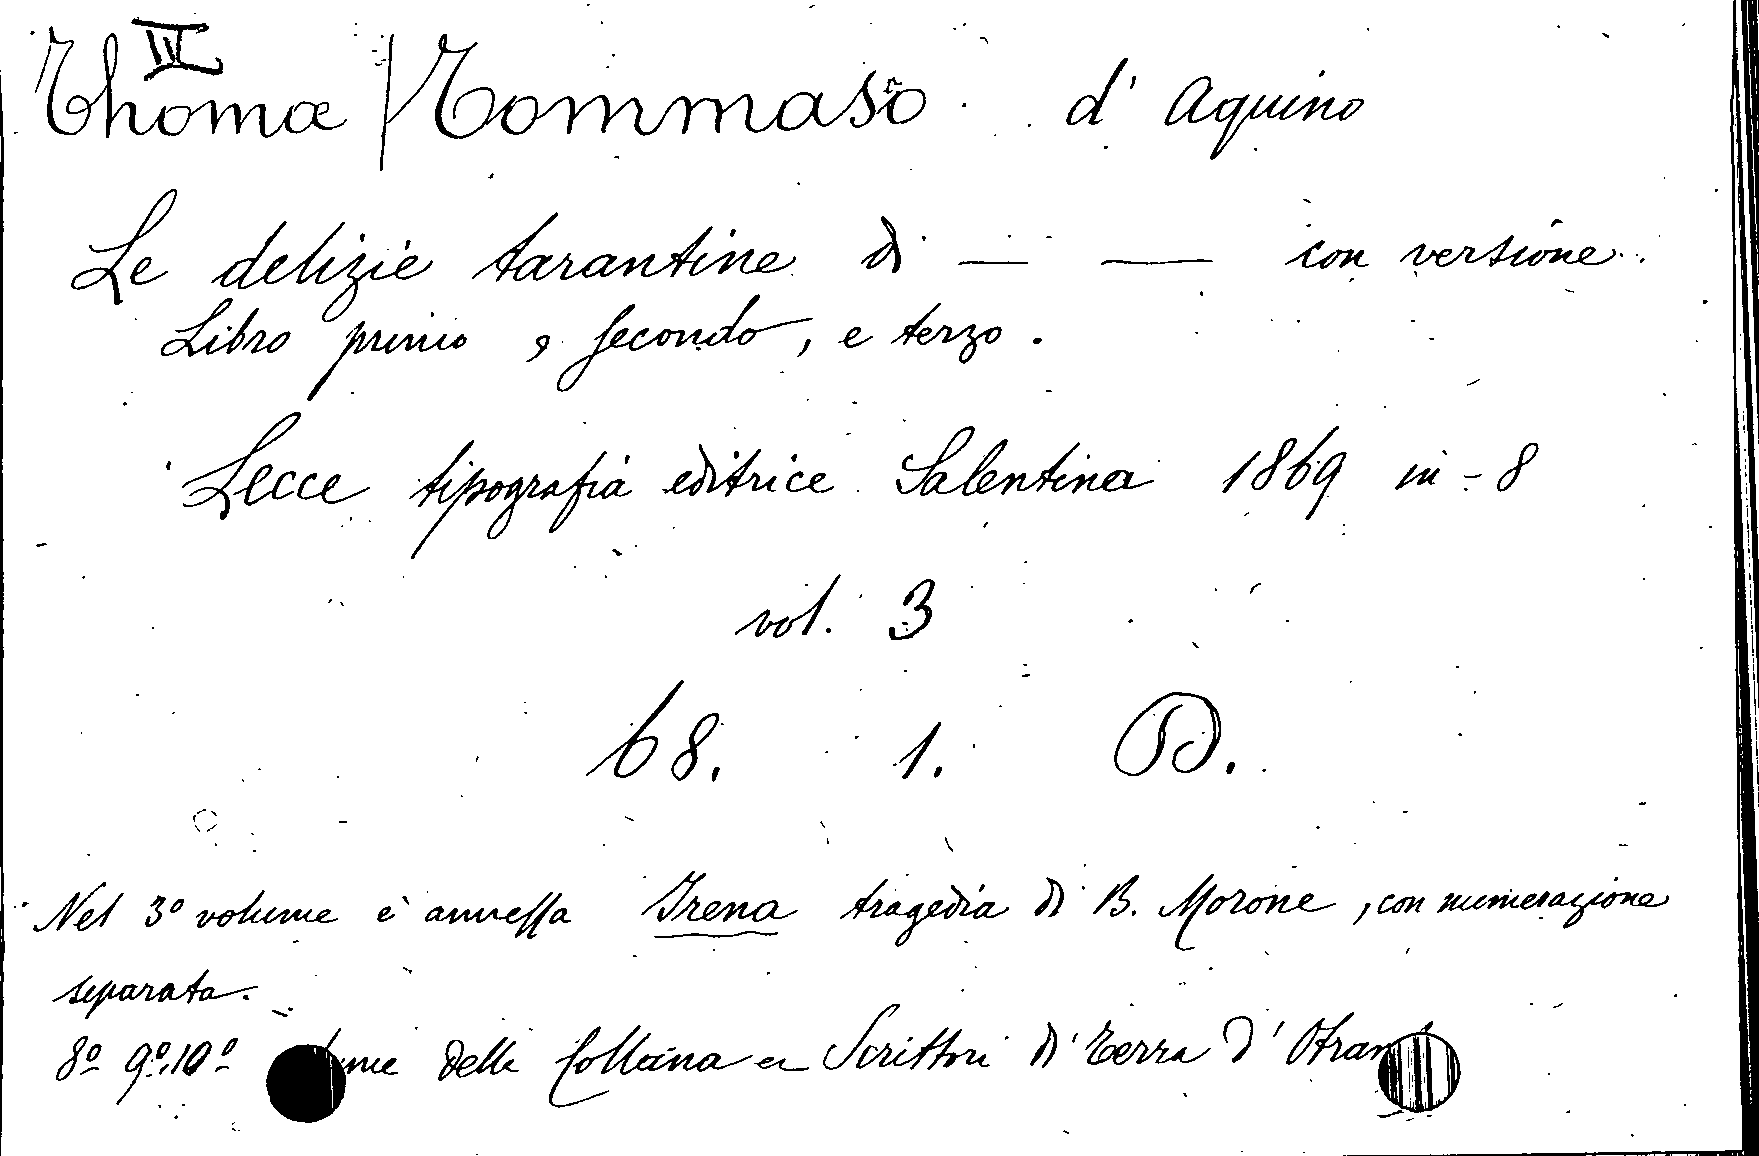 IV
Thomæ / Tommaso d' Aquino
Le delizie tarantine di — — con versione
Libro primo, secondo, e terzo.
Lecce tipografia editrice Salentina 1869 in-8
vol. 3
68. 1.
Nel 3º volume è annessa Irena tragedia di B. Morone, con numerazione
separata.
8º 9º.10º delle Collana Scrittori di Terra d'